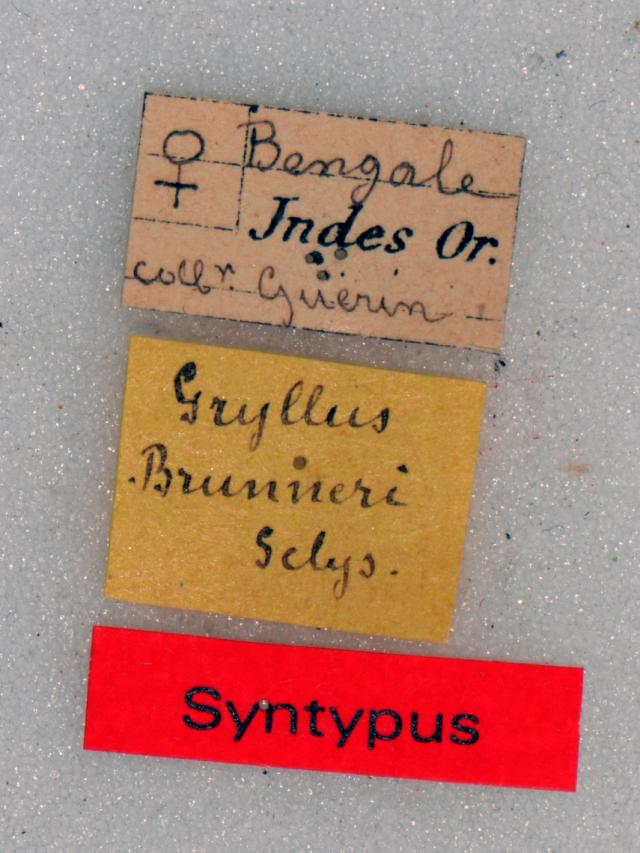 ♀ Bengale
Indes Or.
collʳ. Guérin
Gryllus
Brunneri
Selys.
Syntypus